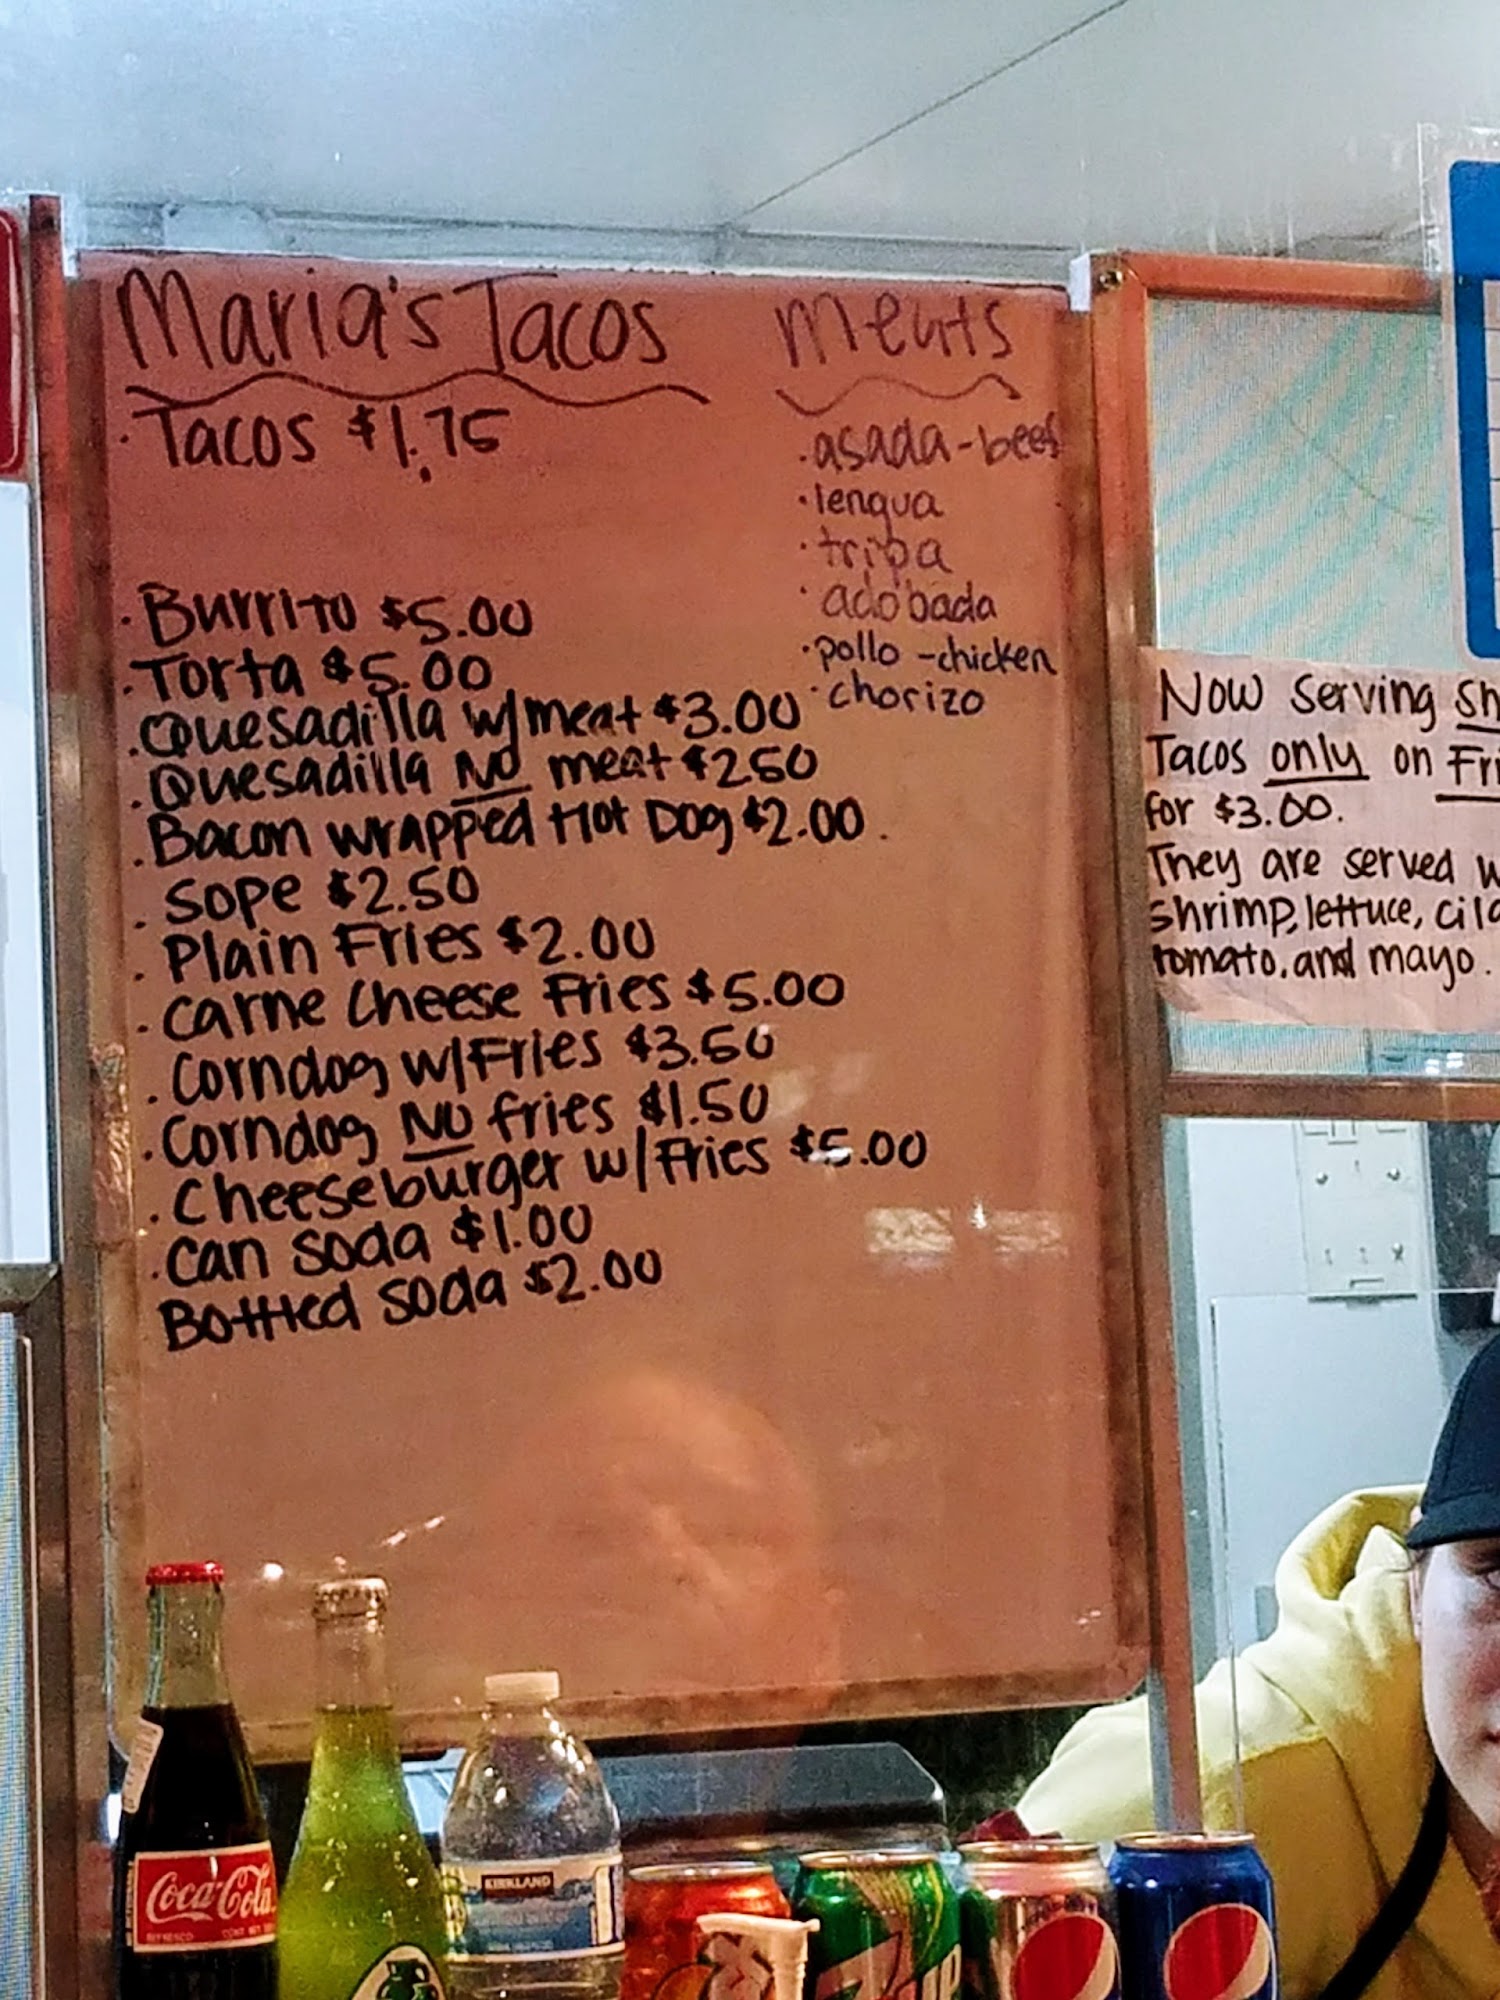 Maria's Tacos
· Tacos $1.75
· Burrito $5.00
· Torta $5.00
· Quesadilla w/meat $3.00
· Quesadilla NO meat $250
· Bacon wrapped Hot Dog $2.00.
· Sope $2.50
· Plain Fries $2.00
· Carne Cheese Fries $5.00
· Corndog w/Fries $3.50
· Corndog NO fries $1.50
· Cheeseburger w/Fries $5.00
· Can soda $1.00
Bottled soda $2.00
Meats
· asada-beef
· lengua
· tripa
· adobada
· pollo -chicken
· chorizo
Now serving
Tacos only on
for $3.00.
They are served
shrimp, lettuce,
tomato, and mayo.
Coca-Cola
REFRESCO
KIRKLAND
7UP